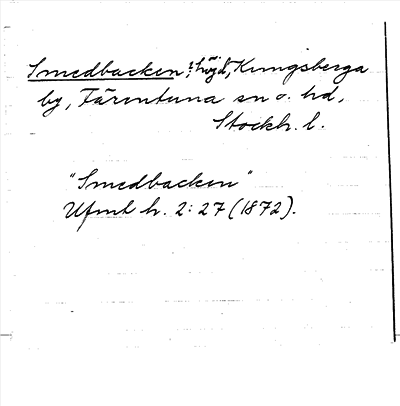 Smedbacken, höjd, Kungsberga
by, Färentuna sn o. hd,
Stockh. l.
"Smedbacken"
Ufmt h. 2:27 (1872).